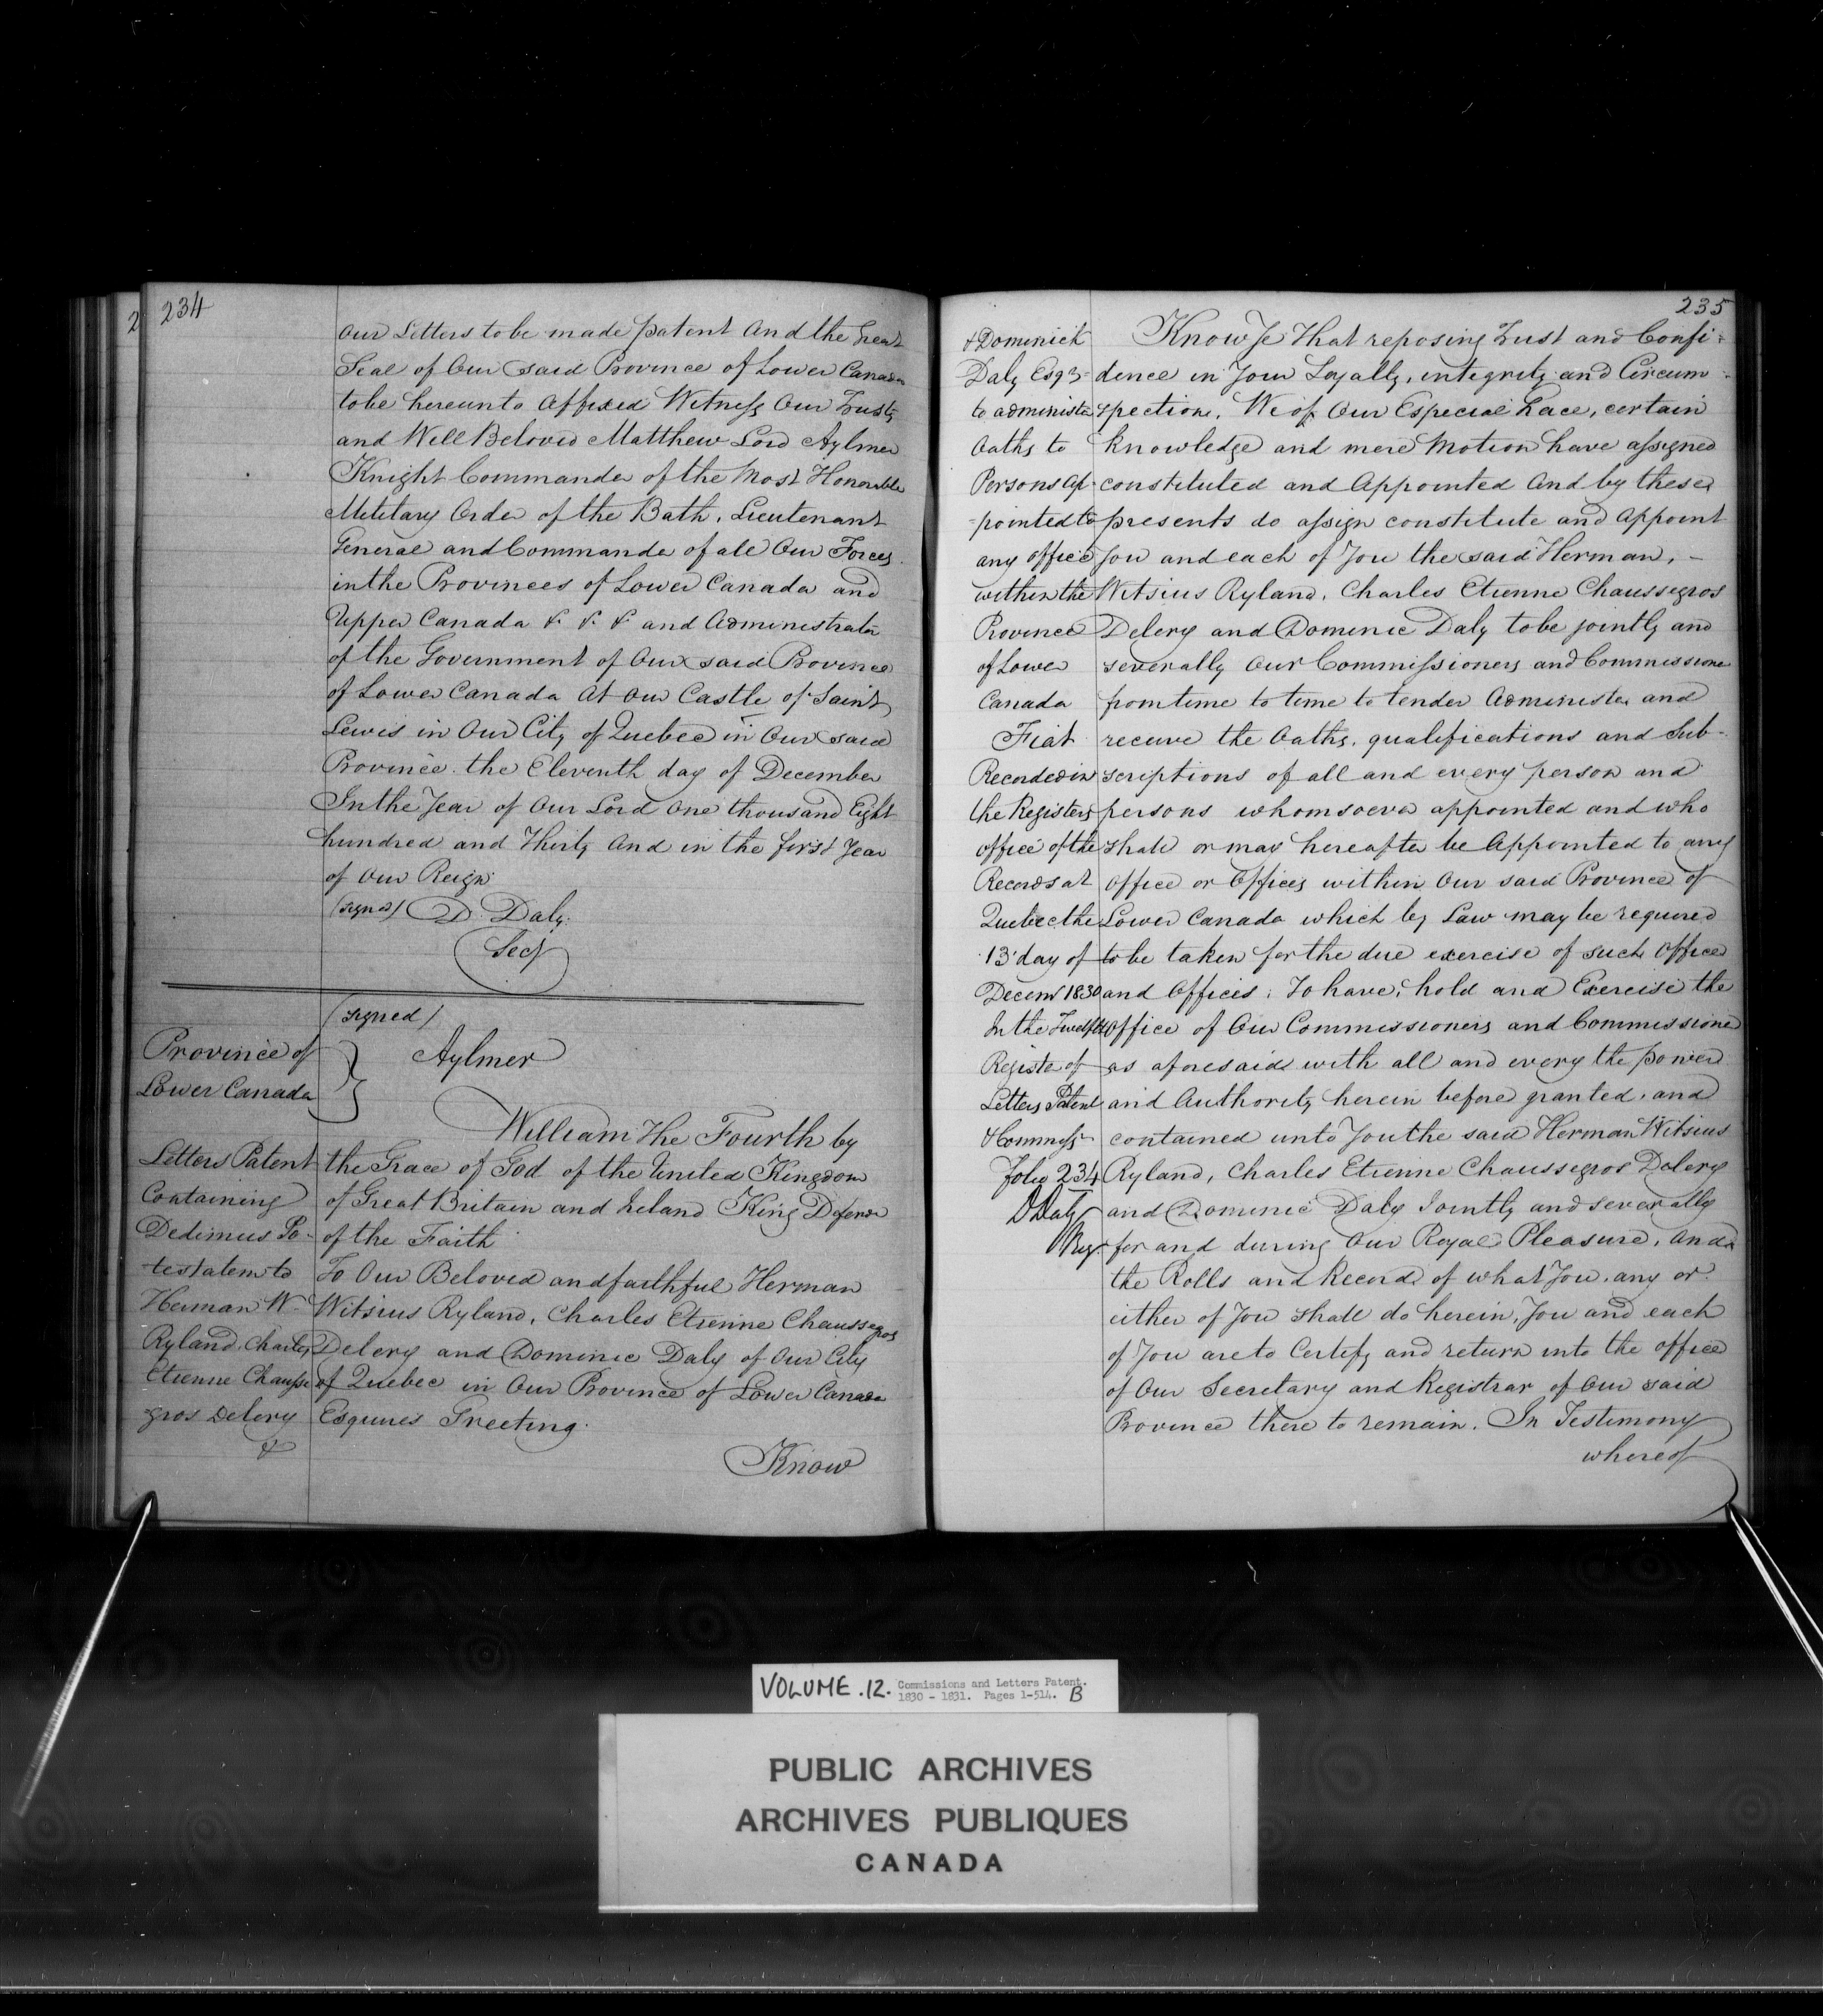 234
our Letters to be made patent and the Great
Seal of Our said Province of Lower Canada
to be hereunto affixed Witness Our Trusty
and Well Beloved Matthew Lord Aylmer
Knight Commander of the Most Honorable
Military Order of the Bath, Lieutenant
General and Commander of all Our Forces
in the Provinces of Lower Canada and
Upper Canada &. &. &. and Administrator
of the Government of Our said Province
of Lower Canada At our Castle of Saint
Lewis in Our City of Quebec in Our said
Province the Eleventh day of December
In the Year of Our Lord One thousand Eight
hundred and Thirty And in the first Year
of Our Reign
(signed) D. Daly.
Secy
(signed)
Aylmer
Province of
Lower Canada
William the Fourth by
the Grace of God of the United Kingdom
of Great Britain and Ireland King Defender
of the Faith
To Our Beloved and faithful Herman
Witsius Ryland, Charles Etienne Chaussegros
Delery and Dominic Daly of Our City
of Quebec in Our Province of Lower Canada
Esquires Greeting.
Know
Letters Patent
Containing
Dedimus Po-
testatem to
Herman W.
Ryland, Charles
Etienne Chausse
gros Delery
&
235
& Dominick
Daly Esqrs
to administer
Oaths to
Persons ap-
=pointed to
any office
within the
Province
of Lower
Canada
Fiat
Recorded in
the Registers
office of the
Records at
Quebec the
13 day of
Decemr 1830
In the Twelfth
Register of
Letters Patent
& Commiss
folio 234
D Daly
Reg.
Know Ye that reposing Trust and Confi=
dence in Your Loyalty, integrity and Circum
spection, We of Our Especial Grace, certain
knowledge and mere Motion have assigned
constituted and Appointed And by these
presents do assign constitute and appoint
You and each of You the said Herman,
Witsius Ryland, Charles Etienne Chaussegros
Delery and Dominic Daly to be jointly and
severally Our Commissioners and Commissioner
from time to time to tender Administer and
receive the Oaths, qualifications and Sub-
scriptions of all and every person and
persons whomsoever appointed and who
shall or may hereafter be Appointed to any
office or Offices within Our said Province of
Lower Canada which by Law may be required
to be taken for the due exercise of such Office
and Offices; To have, hold and Exercise the
Office of Our Commissioners and Commissioner
as aforesaid with all and every the power
and Authority herein before granted, and
contained unto You the said Herman Witsius
Ryland, Charles Etienne Chaussegros Delery
and Dominic Daly Jointly and severally
for and during Our Royal Pleasure, And
the Rolls and Records of what You, any or
either of You shall do herein, You and each
of You are to Certify and return into the office
of Our Secretary and Registrar of Our said
Province there to remain. In Testimony
whereof
VOLUME .12. Commissions and Letters Patent.
1830 - 1831. Pages 1-514. B
PUBLIC ARCHIVES
ARCHIVES PUBLIQUES
CANADA